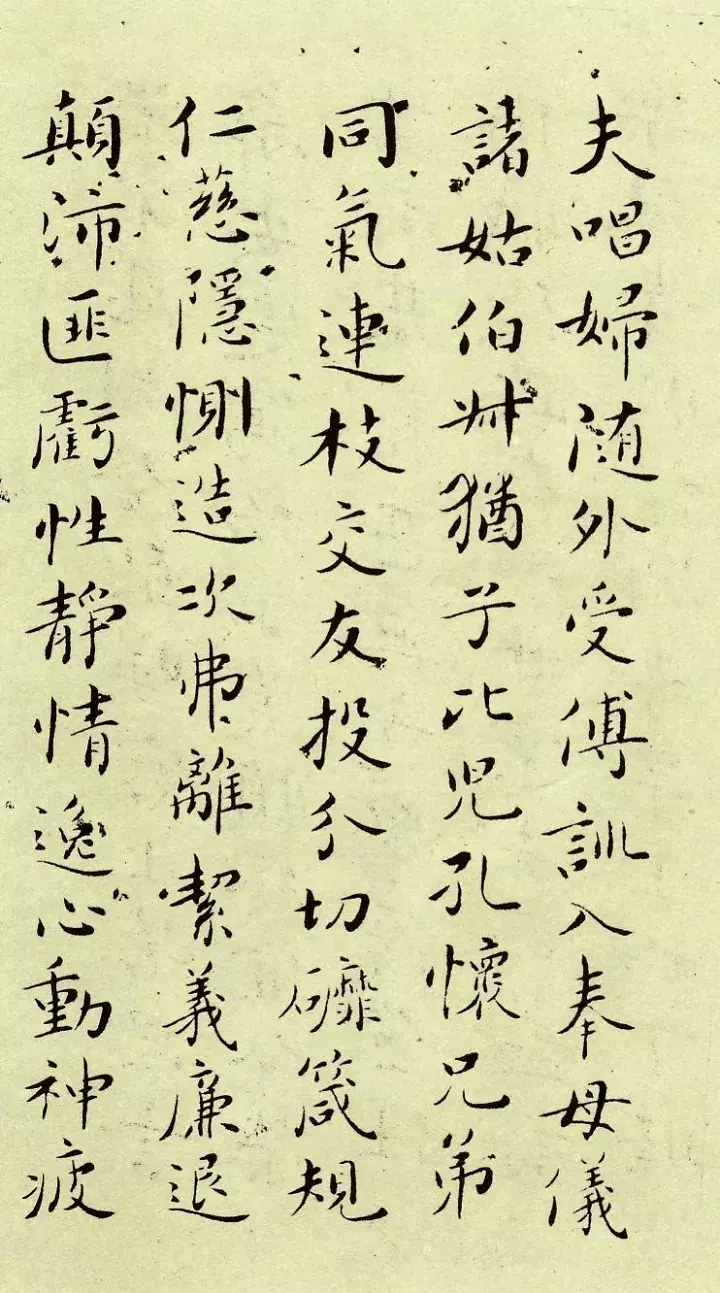 夫唱婦随外受傅訓入奉母儀
諸姑伯叔猶子比兒孔懷兄弟
同氣連枝交友投分切磨箴規
仁慈隱惻造次弗離絜義廉退
顛沛匪虧性靜情逸心動神疲